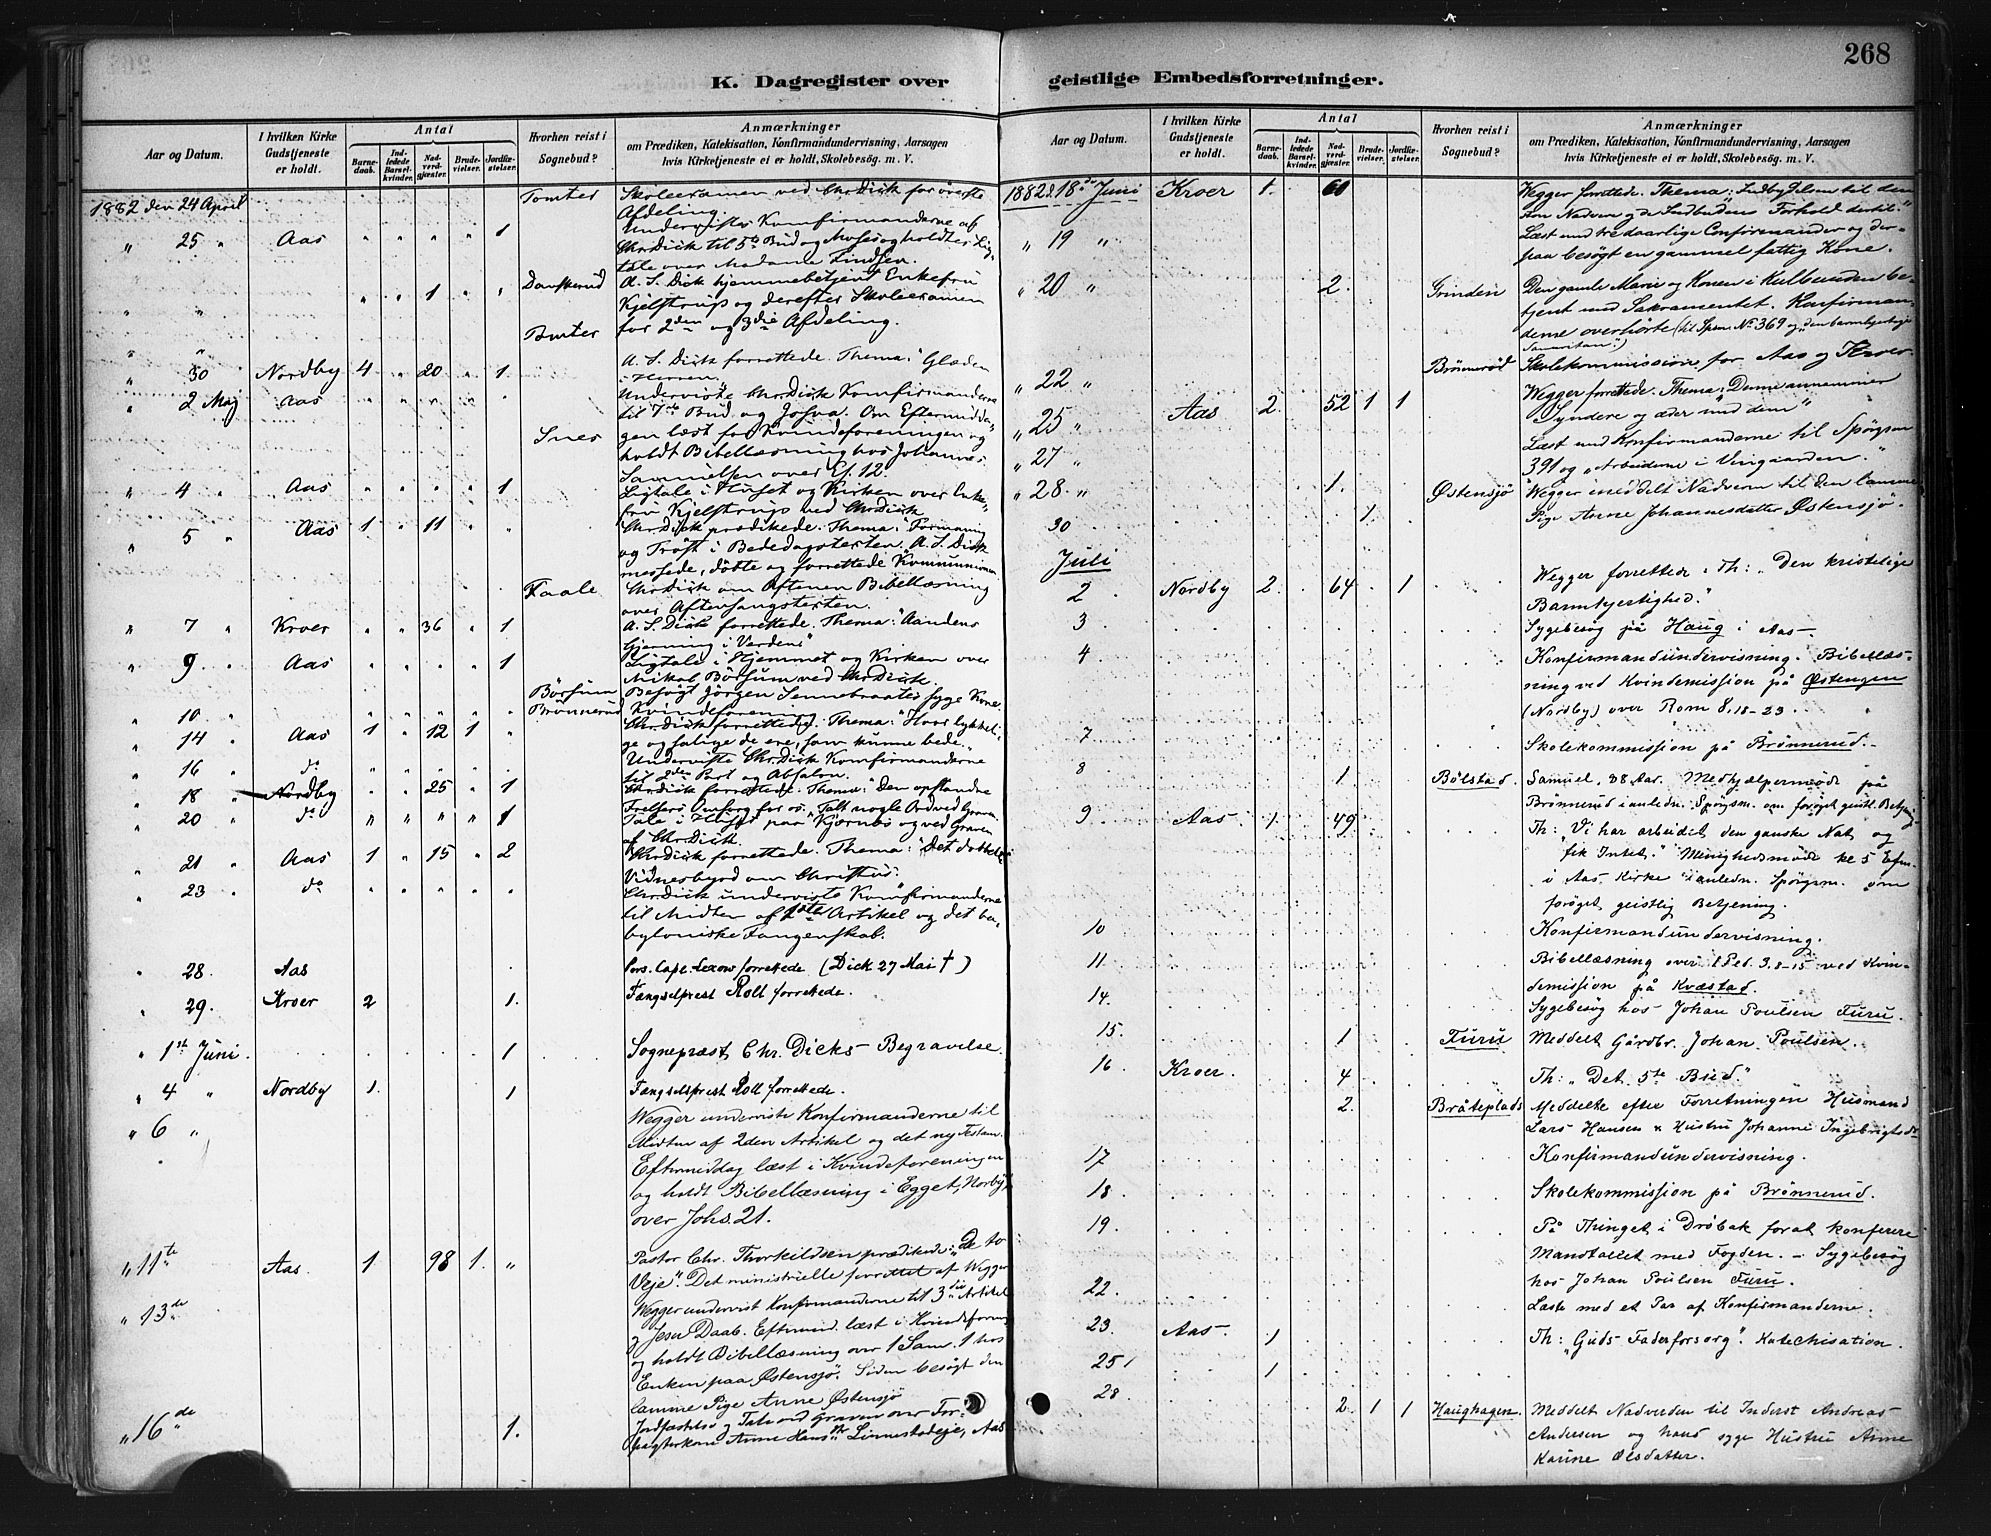 268
K. Dagregister over geistlige Embedsforretninger.
Aar og Datum.
I hvilken Kirke Gudstjeneste er holdt.
Antal
Barnedaab.
Indledede Barselkvinder.
Nadverdgjæster.
Brudevielser.
Jordfæstelser.
Hvorhen reist i Sognebud?
Anmærkninger
om Prædiken, Katekisation, Konfirmandundervisning, Aarsagen
hvis Kirketjeneste ei er holdt, Skolebesøg. m. V.
1882 den 24 April Tomter Skoleexamen ved Chr. Dick for øverste
Afdeling.
" 25 " Aas " " " " 1 Undervistes Konfirmanderne af
Chr. Dick til 5te Bud og Moses og holdtes Lig-
tale over Madame Lindsen.
" " " " 1 " " A. S. Dick hjemmebetjent Enkefru
Kjelstrup og derefter Skoleexamen
" " Tomter for 2den og 3die Afdeling.
" 30 " Nordby 4 " 20 " 1. A. S. Dick forrettede. Thema: "Glæden
i Herren".
" 2 Maj Aas " " " " " Underviste Chr. Dick Konfirmanderne
til 7de Bud og Josva. Om Eftermidda-
Snes gen læst for Kvindeforeningen og
holdt Bibellæsning hos Johannes
Samuelsen over Ef. 12.
" 4 " Aas " " " " 1 Ligtale i Huset og Kirken over Enke-
fru Kjelstrup ved Chr. Dick
" 5 " Aas 1 " 11 " " Chr. Dick prædikede. Thema: "Formaning
og Trøst i Bededagsteksten. A. S. Dick
messede, døbte og forrettede Kommunionen
Faale Chr. Dick om Aftenen Bibellæsning
over Aftensangsteksten.
" 7 " Kroer " " 36 " 1 A. S. Dick forrettede. Thema: "Aandens
Gjerning i Verden"
" 9 " Aas " " " " 1 Ligtale i Hjemmet og Kirken over
Nikol. Børsum ved Chr. Dick.
Børsum Besøgt Jørgen Sennebraates syge Kone.
" 10 " " " " " " Brønnerud Kvindeforening
" 14 " Aas 1 " 12 1 " Chr. Dick forrettede. Thema: "Hvor lykkeli-
ge og salige de ere, som kunne bede."
" 16 " do " " " " " Underviste Chr. Dick Konfirmanderne
til 2den Part og Absalon.
" 18 " Nordby " " 25 " 1 Chr. Dick forrettede. Thema: "Den opstandne
Frelsers Omsorg for os. Talt nogle Ord ved Graven
" 20 " do " " " " 1 Tale i Huset paa Kjærnes og ved Graven
af Chr. Dick.
" 21 " Aas 1 " 15 " 2 Chr. Dick forrettede. Thema: "Det dobbelte
Vidnesbyrd om Christus."
" 23 " do " " " " " Chr. Dick underviste Konfirmanderne
til Midten af 1ste Artikel og det ba-
byloniske Fangenskab.
" 28. Aas Pers. Capl. Lexow forrettede (Dick 27 Mai †)
" 29. Kroer 2 1. Fængselprest Roll forrettede.
" 1ste Juni. 1 Sognepræst Chr. Dicks Begravelse.
" 4 " Nordby 1. 1 Fængselsprest Roll forrettede.
" 6 " Wegger underviste Konfirmanderne til
Midten af 2den Artikel og det ny Testam.
Eftermiddag læst i Kvindeforeningen
og holdt Bibellæsning i Egget, Norby
over Johs. 21.
" 11te Aas. 1 98 1. " Pastor Chr. Thorkildsen prædikede: "De to
Veje". Det ministrielle forrettet af Wegger
" 13de Wegger undervist Konfirmanderne til 3die Artikel
og Jesu Daab. Eftermd. læst i Kvindeforening
og holdt Bibellæsning over 1 Sam. 1 hos
Enken paa Østensjø. Siden besøgt den
lamme Pige Anne Østensjø
" 16de 1. Jordfæstelse og Tale ved Graven over For-
pagterkone Anne Hansdtr. Linnestadeje, Aas
Aar og Datum.
I hvilken Kirke Gudstjeneste er holdt.
Antal
Barnedaab.
Indledede Barselkvinder.
Nadverdgjæster.
Brudevielser.
Jordfæstelser.
Hvorhen reist i Sognebud?
Anmærkninger
om Prædiken, Katekisation, Konfirmandundervisning, Aarsagen
hvis Kirketjeneste ei er holdt, Skolebesøg. m. V.
1882 d. 18de Juni Kroer 1. 60 Wegger forrettede. Thema: Indbydelsen til den
store Nadvere og de Indbudens Forhold dertil."
" 19 " Læst med tre daarlige Confirmander og der-
paa besøgt en gammel fattig Kone.
" 20 " 2. Grinden Den gamle Marie og Konen i Kulbunden be-
tjent med Sakramentet. Konfirman-
derne overhørte (til Spm. No 369 og "den barmhjertige
Samaritan".)
" 22 " Brønnerød Skolekommission for Aas og Kroer.
" 25 " Aas 2. 52 1 1 Wegger forrettede. Thema: Denne annammer
Syndere og æder med dem"
" 27 " Læst med Konfirmanderne til Spørgsm
391 og "Arbeiderne i Vingaarden."
" 28. " 1. Østensjø Wegger meddelt Nadvern til den lamme
30 1 Pige Anne Johannesdatter Østensjø.
Juli
2 Nordby 2. 64 1 Wegger forrettede. Th: "Den kristelige
Barmhjertighed."
3 Sygebesøg på Haug i Aas.
4 Konfirmandundervisning. Bibellæs-
ning ved Kvindemission på Østengen
(Nordby) over Rom 8, 18-23.
7 Skolekommission på Brønnerud.
8 1. Bølstad. Samuel, 88 Aar. Medhjælpermøde på
Brønnerud i anledn. Spørgsm. om forøget geistl. Betjening.
9 Aas. 1 49 Th: "Vi har arbeidet den ganske Nat og
fik Intet." Menighedsmøde kl 5 Efm.
i Aas Kirke i anledn. Spørgsm. om
forøget geistlig Betjening.
10 Konfirmandundervisning.
11 Bibellæsning over 1 Pet. 3, 8-15 ved Kvin-
demission på Kvæstad.
14. Sygebesøg hos Johan Poulsen Furu.
15. 1 Furu Meddelt Gårdbr. Johan Poulsen.
16 Kroer. 4 Th: "Det 5te Bud."
2. Bråteplads Meddelte efter Forretningen Husmand
Lars Hansen & Hustru Johanne Ingebrigtsdr
17 Konfirmandundervisning.
18 Skolekommission på Brønnerud.
19. På Thinget i Drøbak forat konferere
Mandtallet med Fogden. – Sygebesøg
hos Johan Poulsen Furu.
22. Læste med et Par af Konfirmanderne.
23. Aas. 1 Th: "Guds Faderforsorg". Katechisation.
25 1
28. 2. 1 1 Haughagen. Meddelt Nadverden til Inderst Andreas
Andersen og hans syge Hustru Anne
Karine Olsdatter.